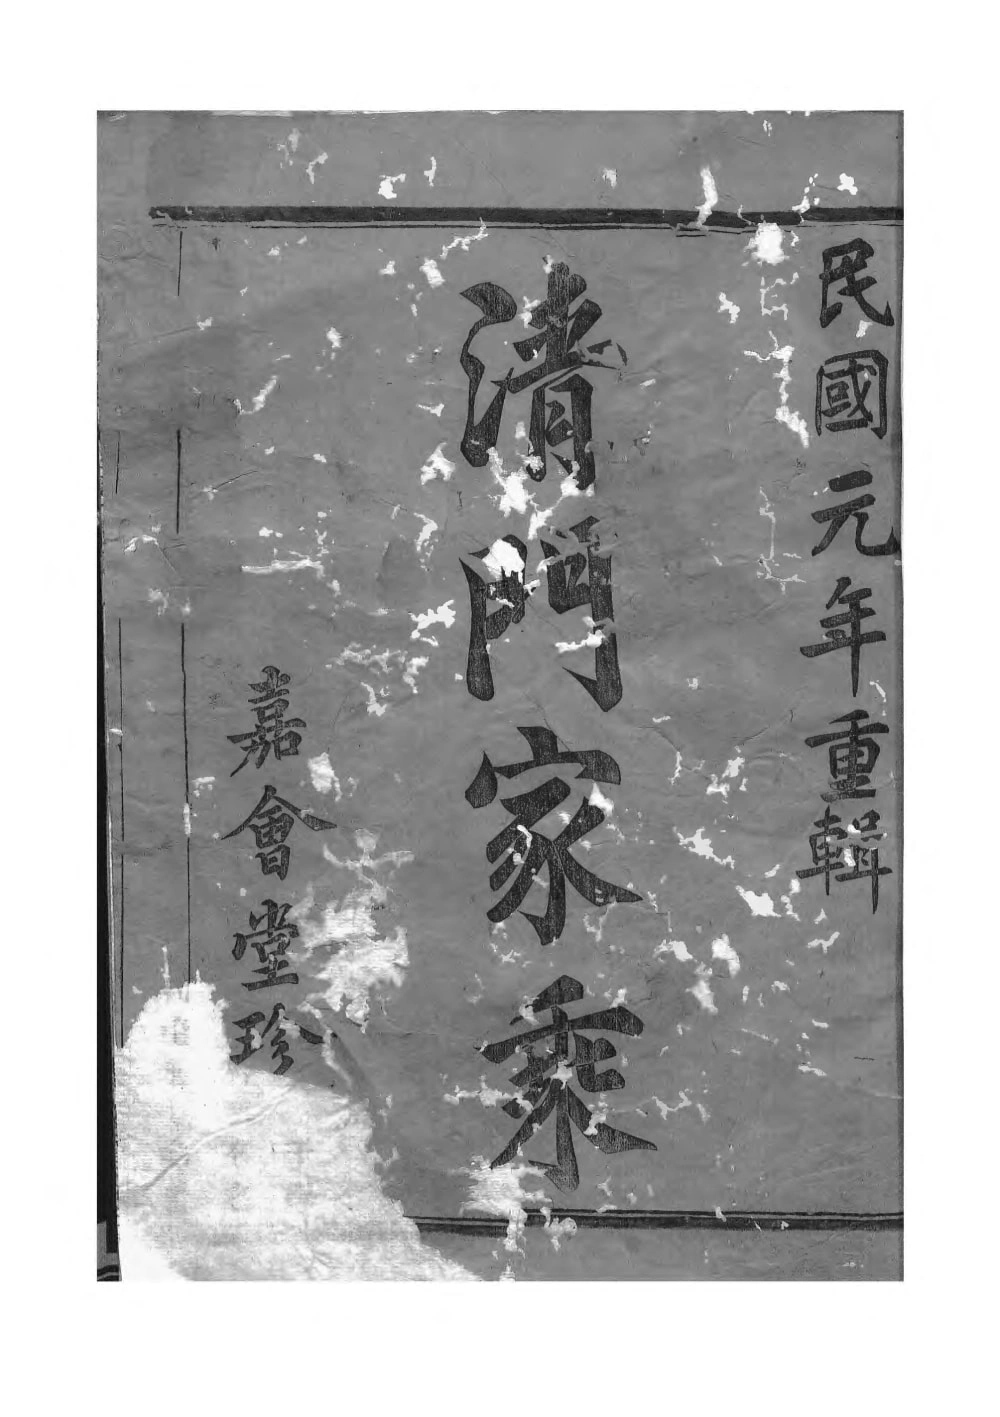 民國元年重輯
清門家乘
嘉會堂珍